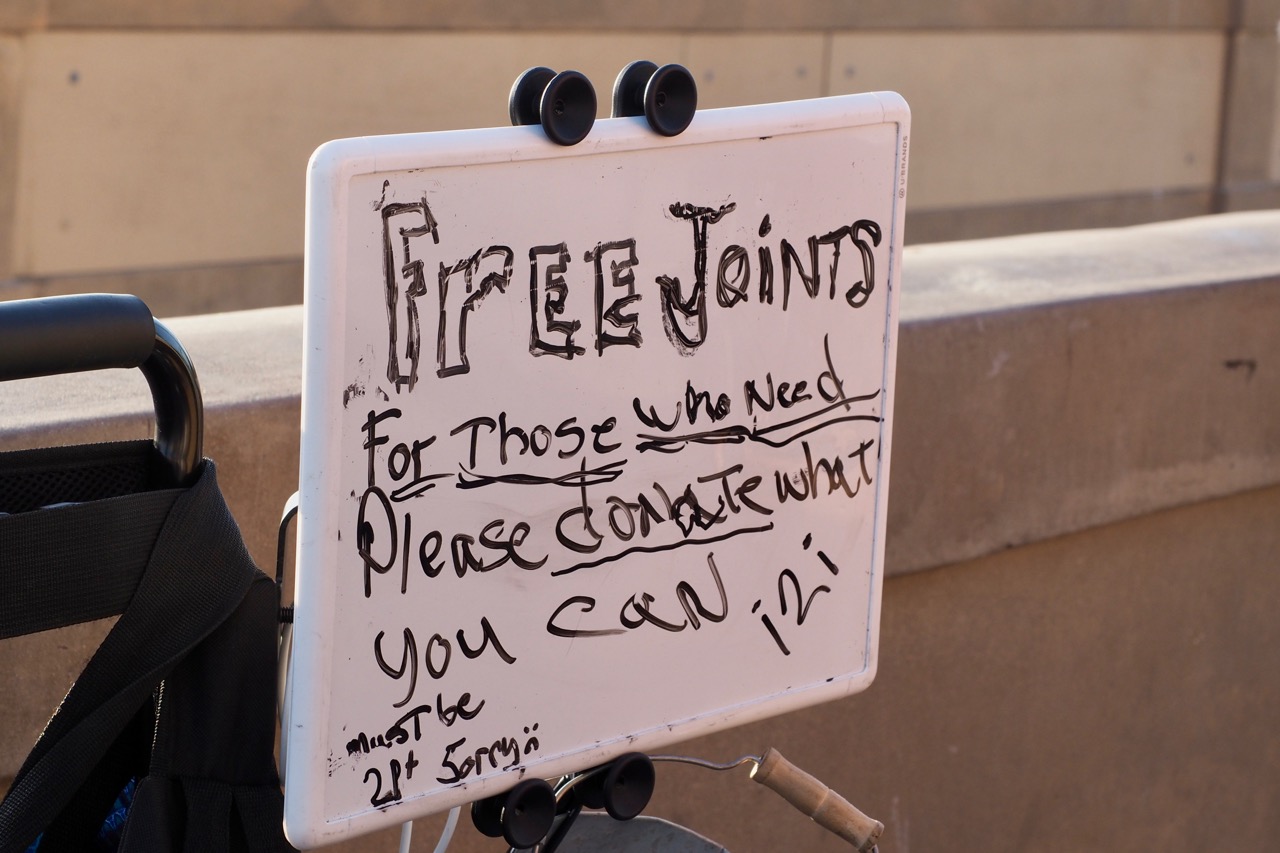 FrEE JOiNTS
For Those who Need
Please donate what
you caN
must be
21+ Sorry
U BRANDS